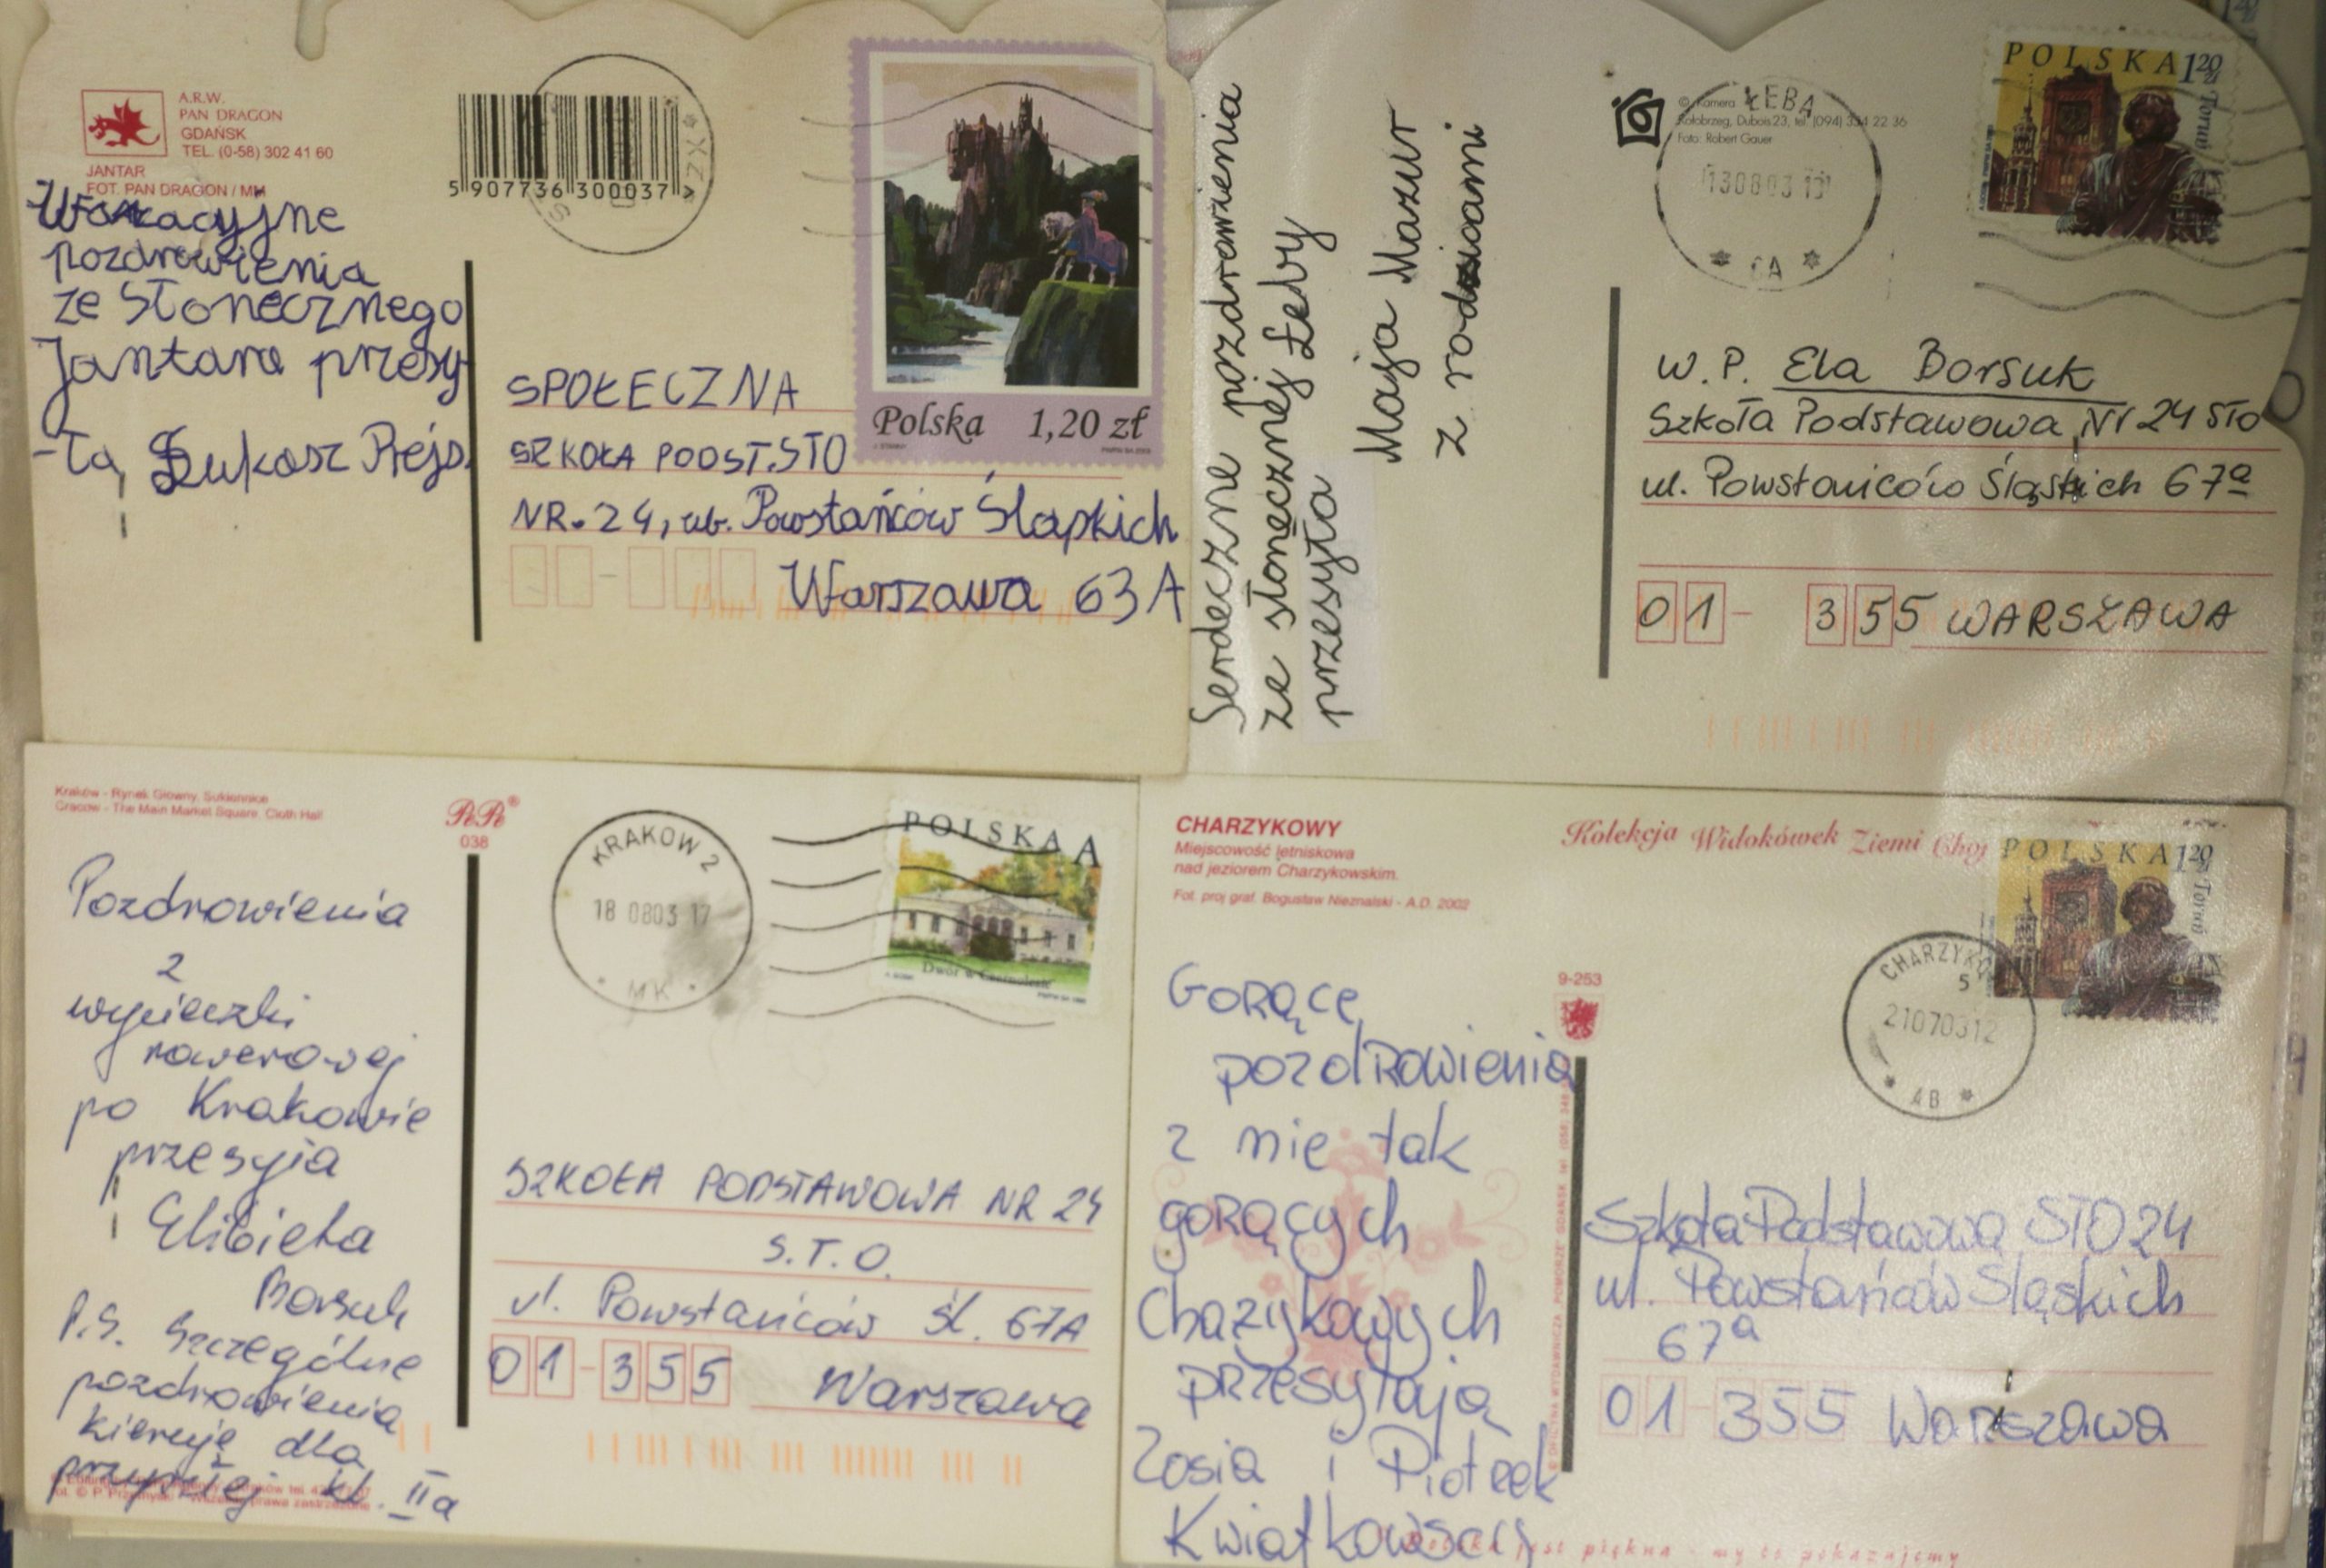 A.R.W.
PAN DRAGON
GDAŃSK
TEL. (0-58) 302 41 60
JANTAR
FOT. PAN DRAGON / MM
5 907736 300037
Wakacyjne
pozdrowienia
ze Słonecznego
Jantara przesy
-ła, Łukasz Rejs.
Polska 1,20 zł
SPOŁECZNA
SZKOŁA PODST. STO
NR. 24, ul. Powstańców Śląskich
Warszawa 63A
Serdeczne pozdrowienia
ze słonecznej Łeby
przesyła
Maja Mazur
z rodzicami
© Kamera
Kołobrzeg, Dubois 23, tel. (094) 354 22 36
Foto: Robert Gauer
ŁEBA
130803
CA
POLSKA 120 zł
Toruń
W.P. Ela Borsuk
Szkoła Podstawowa Nr 24 STO
ul. Powstańców Śląskich 67a
01-355 WARSZAWA
Kraków - Rynek Główny, Sukiennice
Cracow - The Main Market Square, Cloth Hall
038
KRAKOW 2
18 0803 17
MK
POLSKA A
Dwór w
Pozdrowienia
z
wycieczki
rowerowej
po Krakowie
przesyła
Elżbieta
Borsuk
P.S. Szczególne
pozdrowienia
kieruję dla
przyszłej kl. IIa
SZKOŁA PODSTAWOWA NR 24
S.T.O.
ul. Powstańców Śl. 67A
01-355 Warszawa
CHARZYKOWY
Miejscowość letniskowa
nad jeziorem Charzykowskim.
Fot. proj graf. Bogusław Nieznalski - A.D. 2002
Kolekcja Widokówek Ziemi Choj
9-253
POLSKA 120 zł
Toruń
CHARZYKO
5
21070312
AB
GORĄCE
pozdRowienia
z nie tak
goRących
Chażykowych
pRzesyłają
Zosia i Piotrek
Kwiatkowscy
Szkoła Podstawowa STO 24
ul. Powstańców Śląskich
67a
01-355 Warszawa
Polska jest piękna - my to pokazujemy